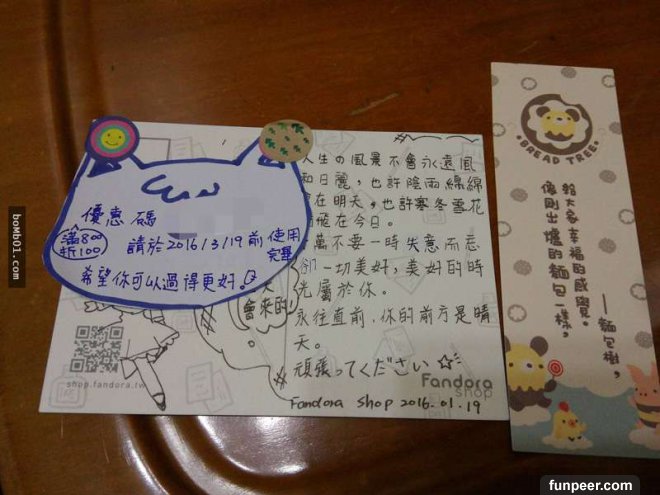 優惠碼
滿800
折100
請於2016/3/19前使用
完畢
希望你可以過得更好。
會來的!
shop.fandora.tw
人生の風景不會永遠風
和日麗，也許陰雨綿綿
在明天，也許寒冬雪花
飛在今日。
萬不要一時失意而忘
卻一切美好，美好的時
光屬於你。
永往直前，你的前方是晴
天。
頑張ってください
Fandora
shop
Fandora Shop 2016.01.19
BREAD TREE
給大家幸福的感覺。
像剛出爐的麵包一樣，
——麵包樹，
boMb01.com
funpeer.com